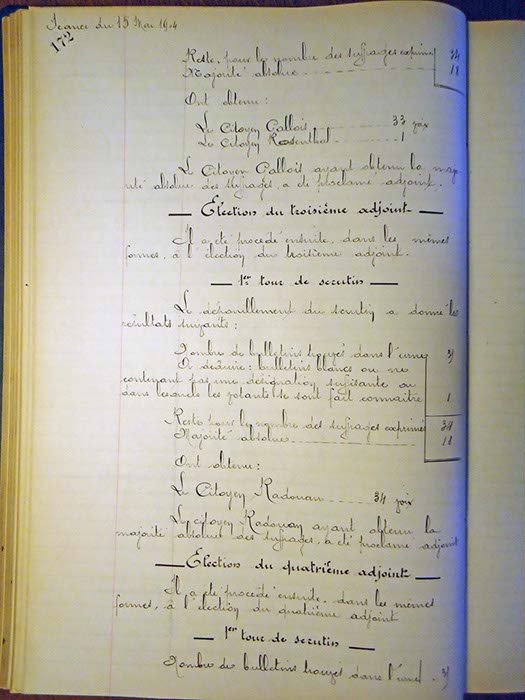 Séance du 15 Mai 1904
172
Reste, pour le nombre des suffrages exprimés 34
Majorité absolue 18
Ont obtenu :
Le Citoyen Gallois 33 voix
Le Citoyen Rosenthal 1
Le Citoyen Gallois ayant obtenu la majo
rité absolue des suffrages, a été proclamé adjoint.
Élection du troisième adjoint
Il a été procédé ensuite, dans les mêmes
formes, à l'élection du troisième adjoint.
1er tour de scrutin
Le dépouillement du scrutin a donné les
résultats suivants :
Nombre de bulletins trouvés dans l'urne
A déduire : bulletins blancs ou ne
contenant pas une désignation suffisante ou
dans lesquels les votants se sont fait connaître 1
Reste pour le nombre des suffrages exprimés 34
Majorité absolue 18
Ont obtenu :
Le Citoyen Radouan 34 voix
Le citoyen Radouan ayant obtenu la
majorité absolue des suffrages, a été proclamé adjoint
Élection du quatrième adjoint
Il a été procédé ensuite, dans les mêmes
formes, à l'élection du quatrième adjoint
1er tour de scrutin
Nombre de bulletins trouvés dans l'urne